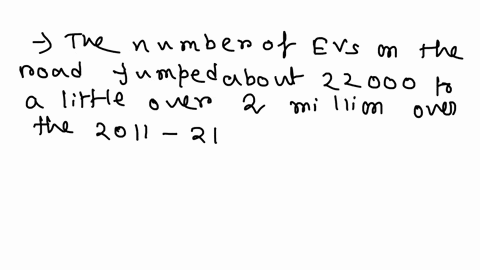 → The number of EVs on the
road jumped about 22000 to
a little over 2 million over
the 2011 - 21